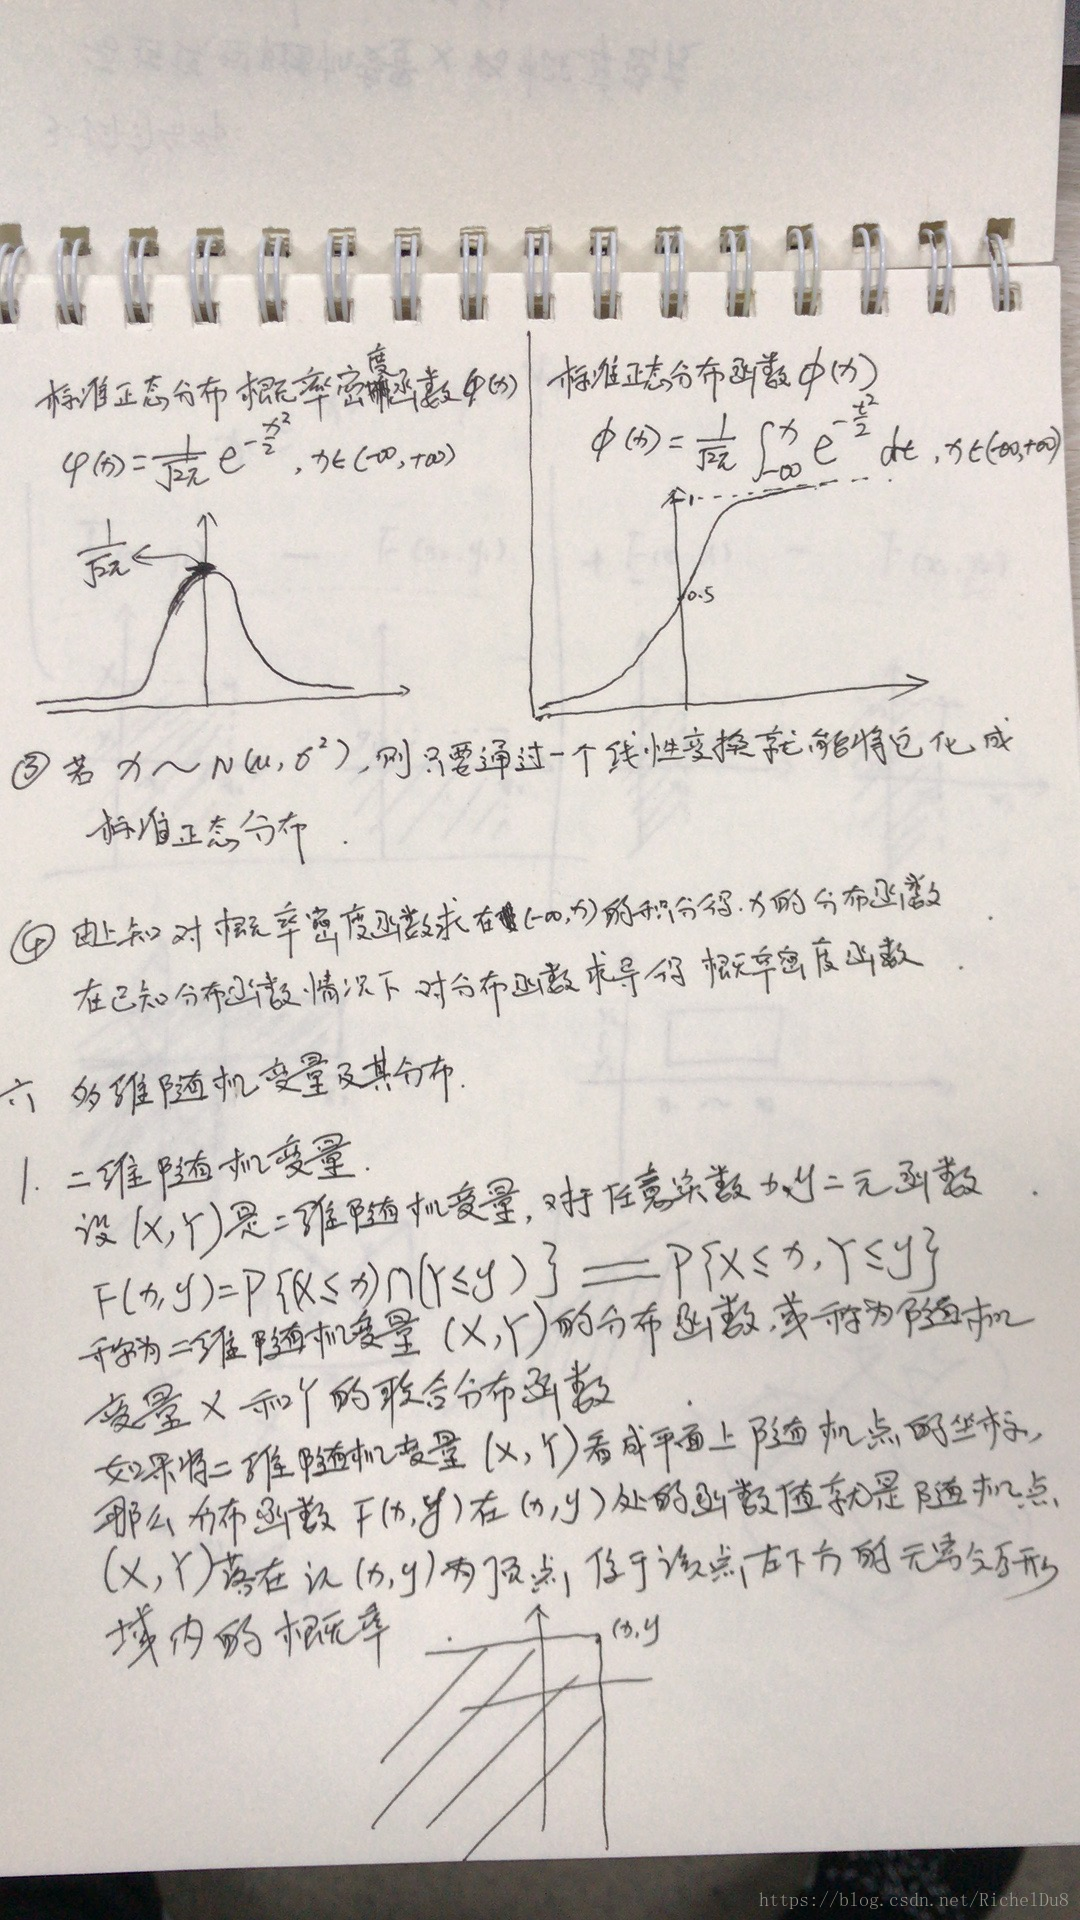 标准正态分布概率密度函数φ(x)
φ(x) = 1/√2π e^(-x²/2) , x∈(-∞,+∞)
1/√2π
标准正态分布函数Φ(x)
Φ(x) = 1/√2π ∫_{-∞}^{x} e^(-t²/2) dt , x∈(-∞,+∞)
1
0.5
③ 若 x ~ N(μ, σ²) , 则只要通过一个线性变换就能将它化成
标准正态分布 .
④ 由上知对概率密度函数求在(-∞, x)的积分得 x的分布函数 .
在已知分布函数情况下对分布函数求导得概率密度函数 .
六 多维随机变量及其分布.
1. 二维随机变量.
设(X,Y)是二维随机变量, 对于任意实数x,y二元函数 .
F(x,y)=P{(X≤x)∩(Y≤y)} == P{X≤x, Y≤y}
称为二维随机变量 (X,Y)的分布函数, 或称为随机
变量X 和Y的联合分布函数 .
如果将二维随机变量 (X,Y)看成平面上随机点的坐标,
那么分布函数F(x,y)在(x,y)处的函数值就是随机点
(X,Y)落在以(x,y)为顶点, 位于该点左下方的无穷矩形
域内的概率
(x,y
https://blog.csdn.net/RichelDu8